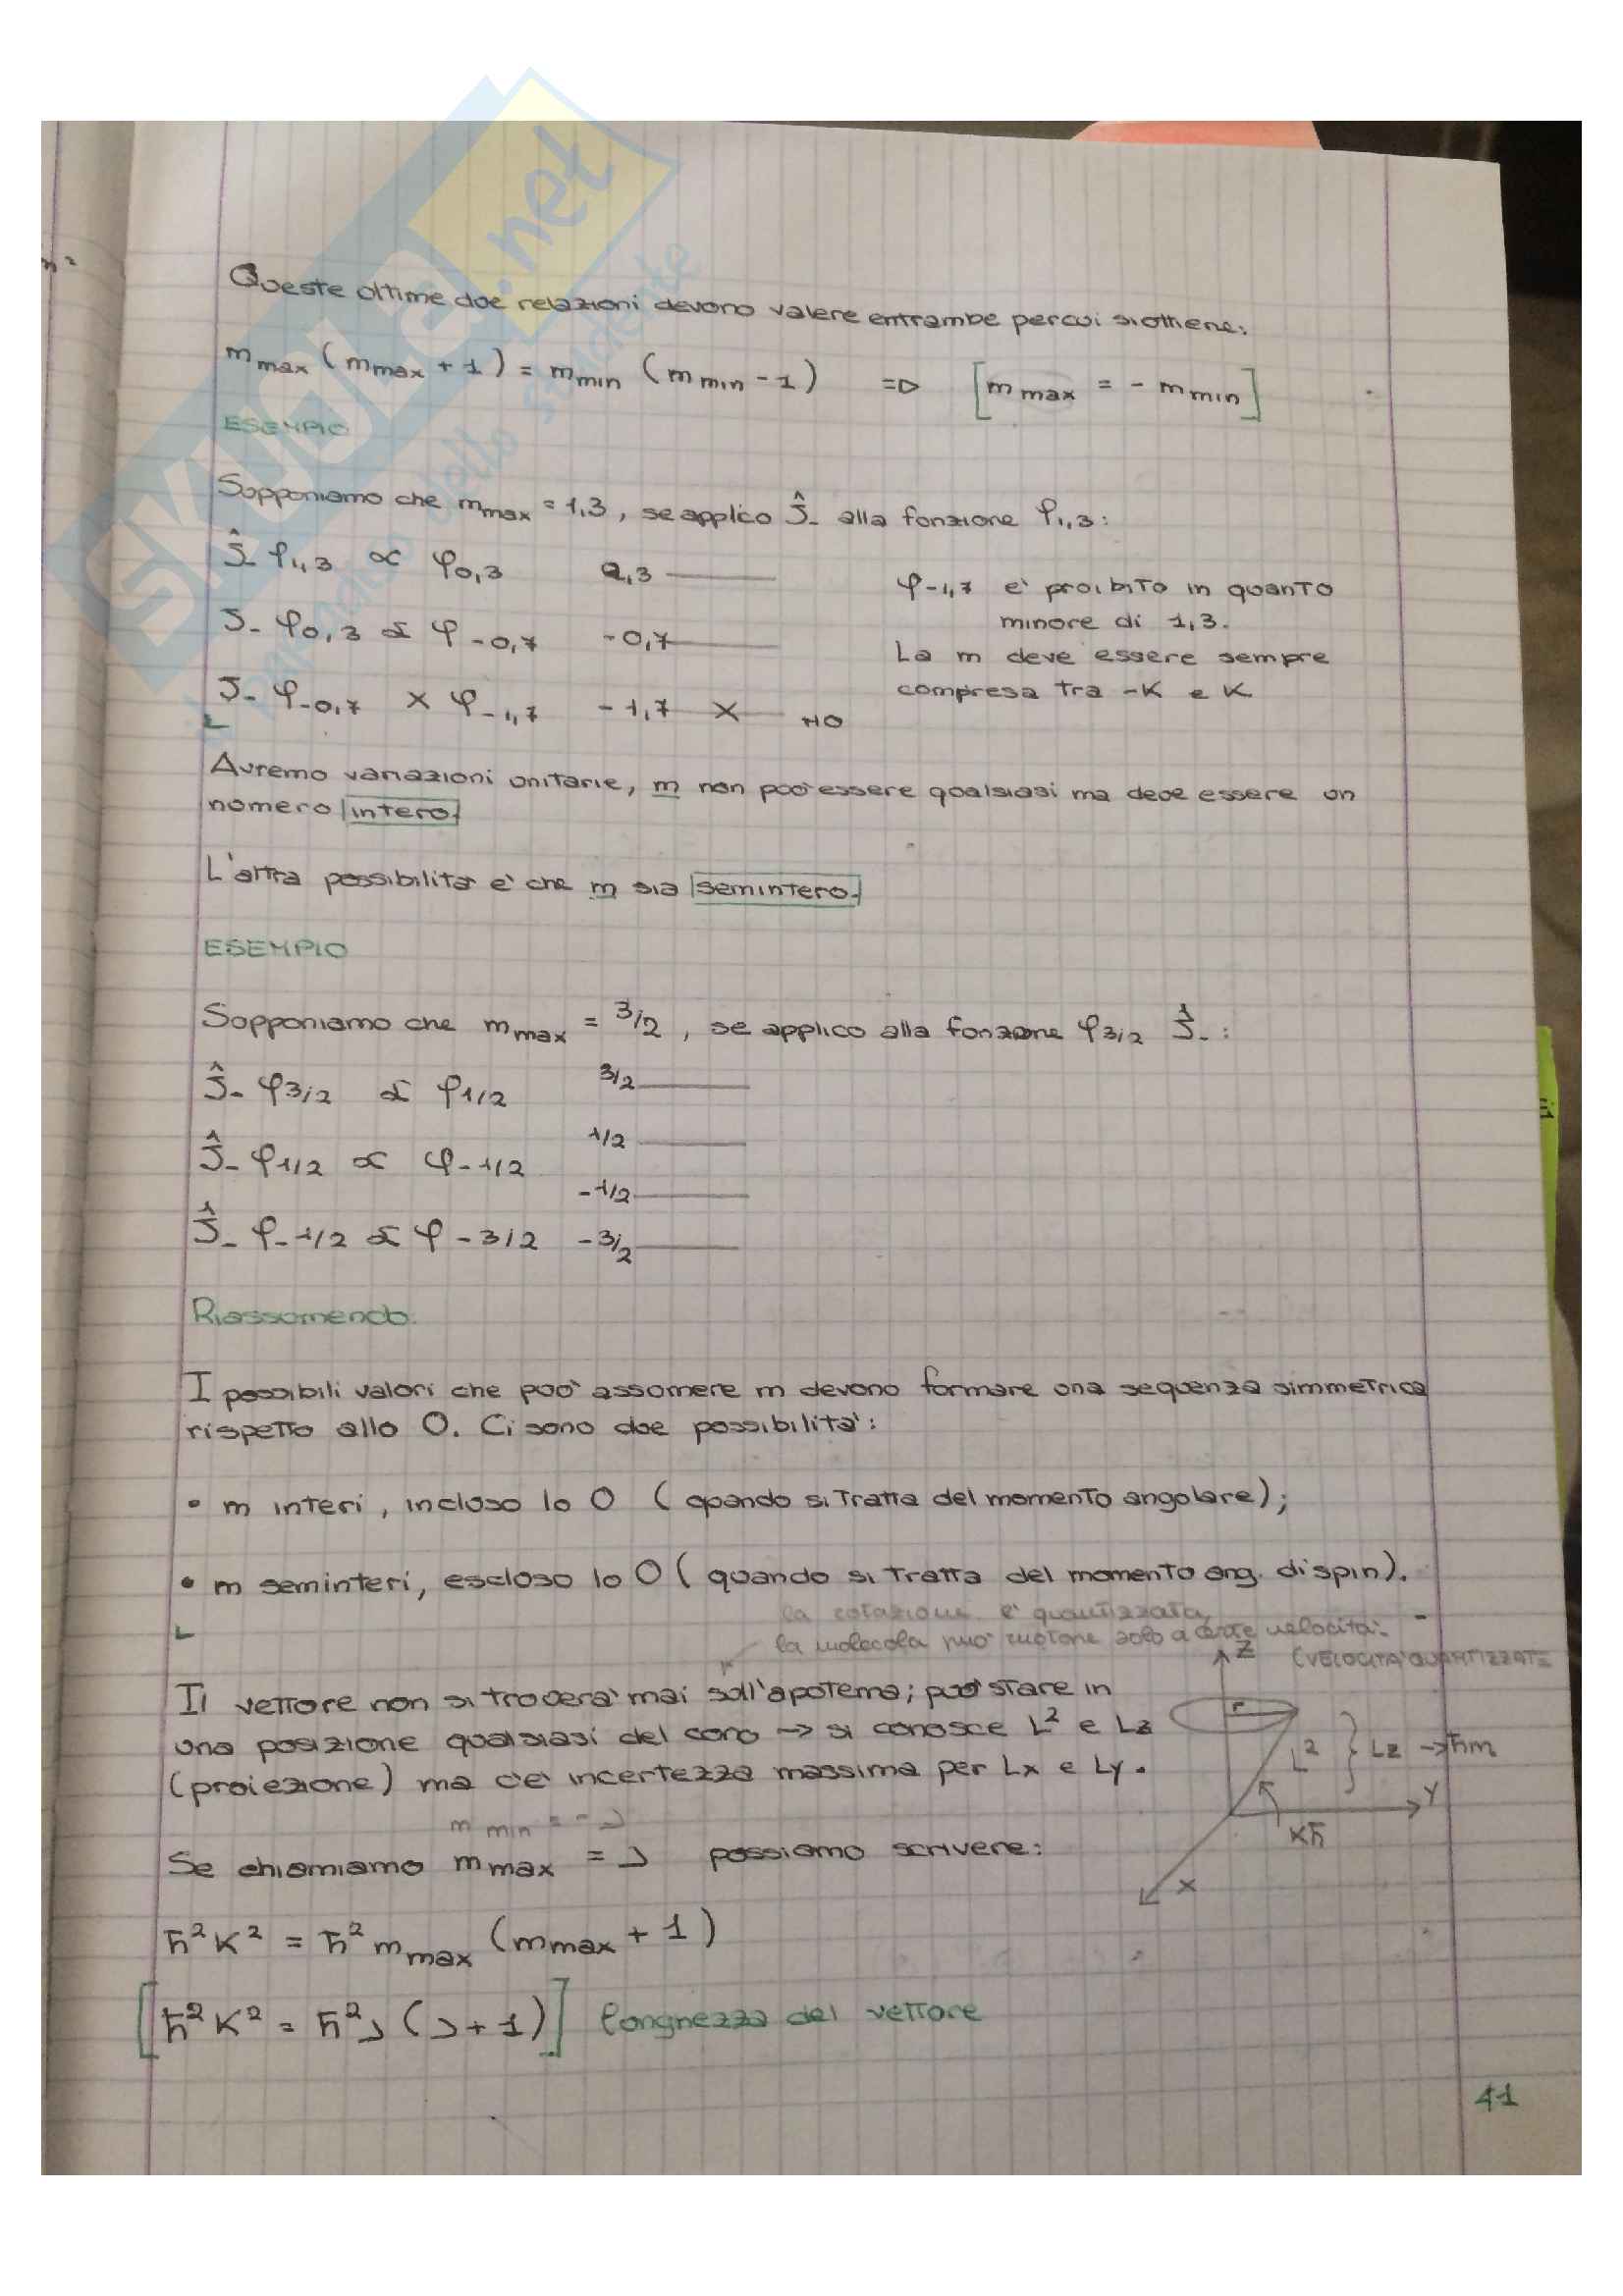 Queste ultime due relazioni devono valere entrambe percui si ottiene:
m max (m max + 1) = m min (m min - 1) => [m max = - m min]
ESEMPIO
Supponiamo che m max = 1,3, se applico Ĵ- alla funzione φ1,3:
Ĵ- φ1,3 ∝ φ0,3 0,3
J- φ0,3 ∝ φ-0,7 -0,7
J- φ-0,7 X φ-1,7 -1,7 X NO
φ-1,7 e' proibito in quanto
minore di 1,3.
La m deve essere sempre
compresa tra -K e K
Avremo variazioni unitarie, m non puo' essere qualsiasi ma deve essere un
numero intero.
L'altra possibilita' e' che m sia semintero.
ESEMPIO
Supponiamo che m max = 3/2, se applico alla funzione φ3/2 Ĵ-:
Ĵ- φ3/2 ∝ φ1/2 3/2
Ĵ- φ1/2 ∝ φ-1/2 1/2
-1/2
Ĵ- φ-1/2 ∝ φ-3/2 -3/2
Riassumendo:
I possibili valori che puo' assumere m devono formare una sequenza simmetrica
rispetto allo 0. Ci sono due possibilita':
• m interi, incluso lo 0 (quando si tratta del momento angolare);
• m seminteri, escluso lo 0 (quando si tratta del momento ang. di spin).
la rotazione e' quantizzata,
la molecola puo' ruotare solo a certe velocita'.
(VELOCITA' QUANTIZZATE
Il vettore non si trovera' mai sull'apotema; puo' stare in
una posizione qualsiasi del cono -> si conosce L² e Lz
(proiezione) ma c'e' incertezza massima per Lx e Ly.
Z
r
L² } Lz -> ħm
Y
Kħ
X
m min = - J
Se chiamiamo m max = J possiamo scrivere:
ħ²K² = ħ² m max (m max + 1)
[ħ²K² = ħ²J (J+1)] lunghezza del vettore
41
SKUOLA.net